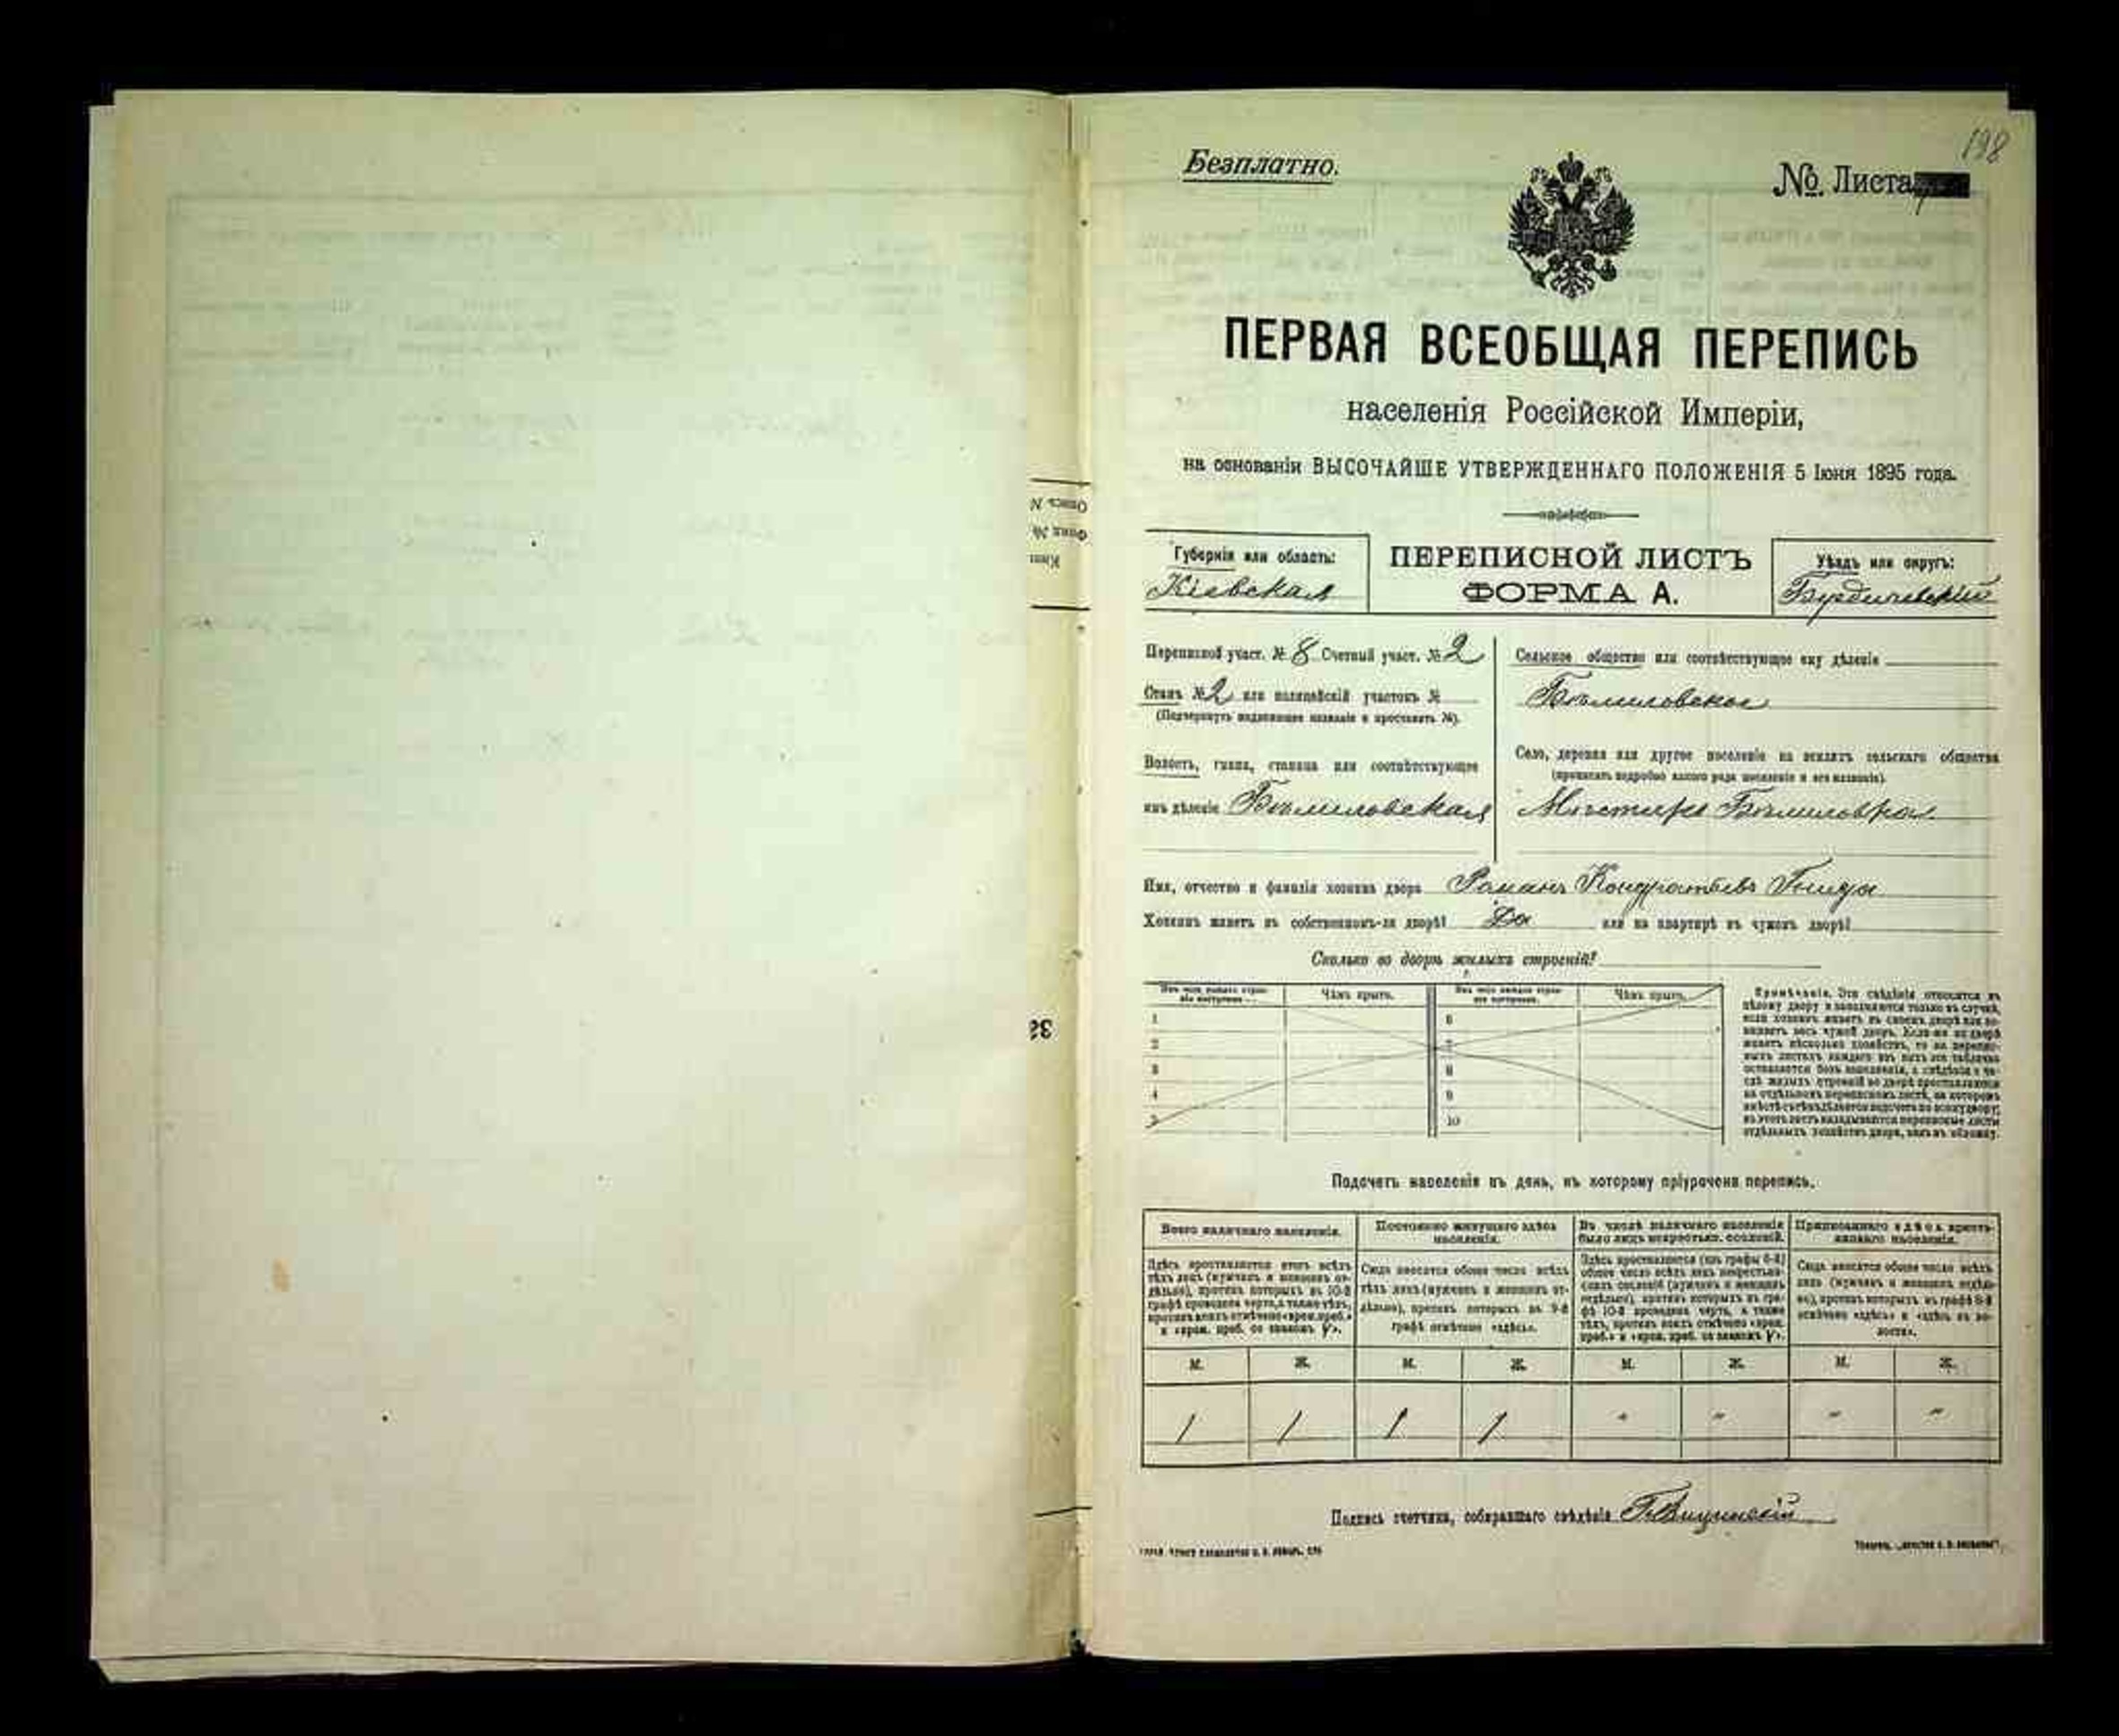 198
Безплатно.
№ Листа
ПЕРВАЯ ВСЕОБЩАЯ ПЕРЕПИСЬ
населенія Россійской Имперіи,
на основаніи ВЫСОЧАЙШЕ УТВЕРЖДЕННАГО ПОЛОЖЕНІЯ 5 Іюня 1895 года.
Губернія или область:
Кіевская
ПЕРЕПИСНОЙ ЛИСТЪ
ФОРМА А.
Уѣздъ или округъ:
Бердичевскій
Переписной участ. № 8 Счетный участ. № 2
Станъ № 2 или полицейскій участокъ №
(Подчеркнуть надлежащее названіе и проставить №).
Волость, гмина, станица или соотвѣтствующее
имъ дѣленіе Бѣлиловская
Сельское общество или соотвѣтствующее ему дѣленіе
Бѣлиловское
Село, деревня или другое поселеніе на земляхъ сельскаго общества
(прописать подробно какого рода поселеніе и его названіе).
Мѣстечко Бѣлиловка
Имя, отчество и фамилія хозяина двора Романъ Кондратьевъ
Хозяинъ живетъ въ собственномъ-ли дворѣ? Да или на квартирѣ въ чужомъ дворѣ?
Сколько во дворѣ жилыхъ строеній?
Чѣмъ крыто.
Чѣмъ крыто.
1 6
2 7
3 8
4 9
5 10
Примѣчаніе. Эти свѣдѣнія относятся къ
цѣлому двору и заполняются только въ случаѣ,
если хозяинъ живетъ въ своемъ дворѣ или за-
нимаетъ весь чужой дворъ. Если-же на дворѣ
живетъ нѣсколько хозяйствъ, то на перепис-
ныхъ листахъ каждаго изъ нихъ эта табличка
оставляется безъ заполненія, а свѣдѣнія о чи-
слѣ жилыхъ строеній во дворѣ проставляются
на отдѣльномъ переписномъ листѣ, на которомъ
вмѣстѣ съ тѣмъ дѣлается подсчетъ по всему двору;
въ этотъ листъ вкладываются переписные листы
отдѣльныхъ хозяйствъ двора, какъ въ обложку.
Подсчетъ населенія въ день, къ которому пріурочена перепись.
Всего наличнаго населенія.
Постоянно живущаго здѣсь
населенія.
Въ числѣ наличнаго населенія
было лицъ некрестьян. сословій.
Приписаннаго здѣсь кресть-
янскаго населенія.
Здѣсь проставляется итогъ всѣхъ
тѣхъ лицъ (мужчинъ и женщинъ от-
дѣльно), противъ которыхъ въ 10-й
графѣ проведена черта, а также тѣхъ,
противъ коихъ отмѣчено «врем. преб.»
и «врем. преб. со знакомъ V».
Сюда вносится общее число всѣхъ
тѣхъ лицъ (мужчинъ и женщинъ от-
дѣльно), противъ которыхъ въ 9-й
графѣ отмѣчено «здѣсь».
Здѣсь проставляется (изъ графы 6-й)
общее число всѣхъ лицъ некрестьян-
скихъ сословій (мужчинъ и женщинъ
отдѣльно), противъ которыхъ въ гра-
фѣ 10-й проведена черта, а также
тѣхъ, противъ коихъ отмѣчено «врем.
преб.» и «врем. преб. со знакомъ V».
Сюда вносится общее число всѣхъ
лицъ (мужчинъ и женщинъ отдѣль-
но), противъ которыхъ въ графѣ 8-й
отмѣчено «здѣсь» и «здѣсь въ во-
лости».
М. Ж. М. Ж. М. Ж. М. Ж.
1 1 1 1 " " " "
Подпись счетчика, собиравшаго свѣдѣнія